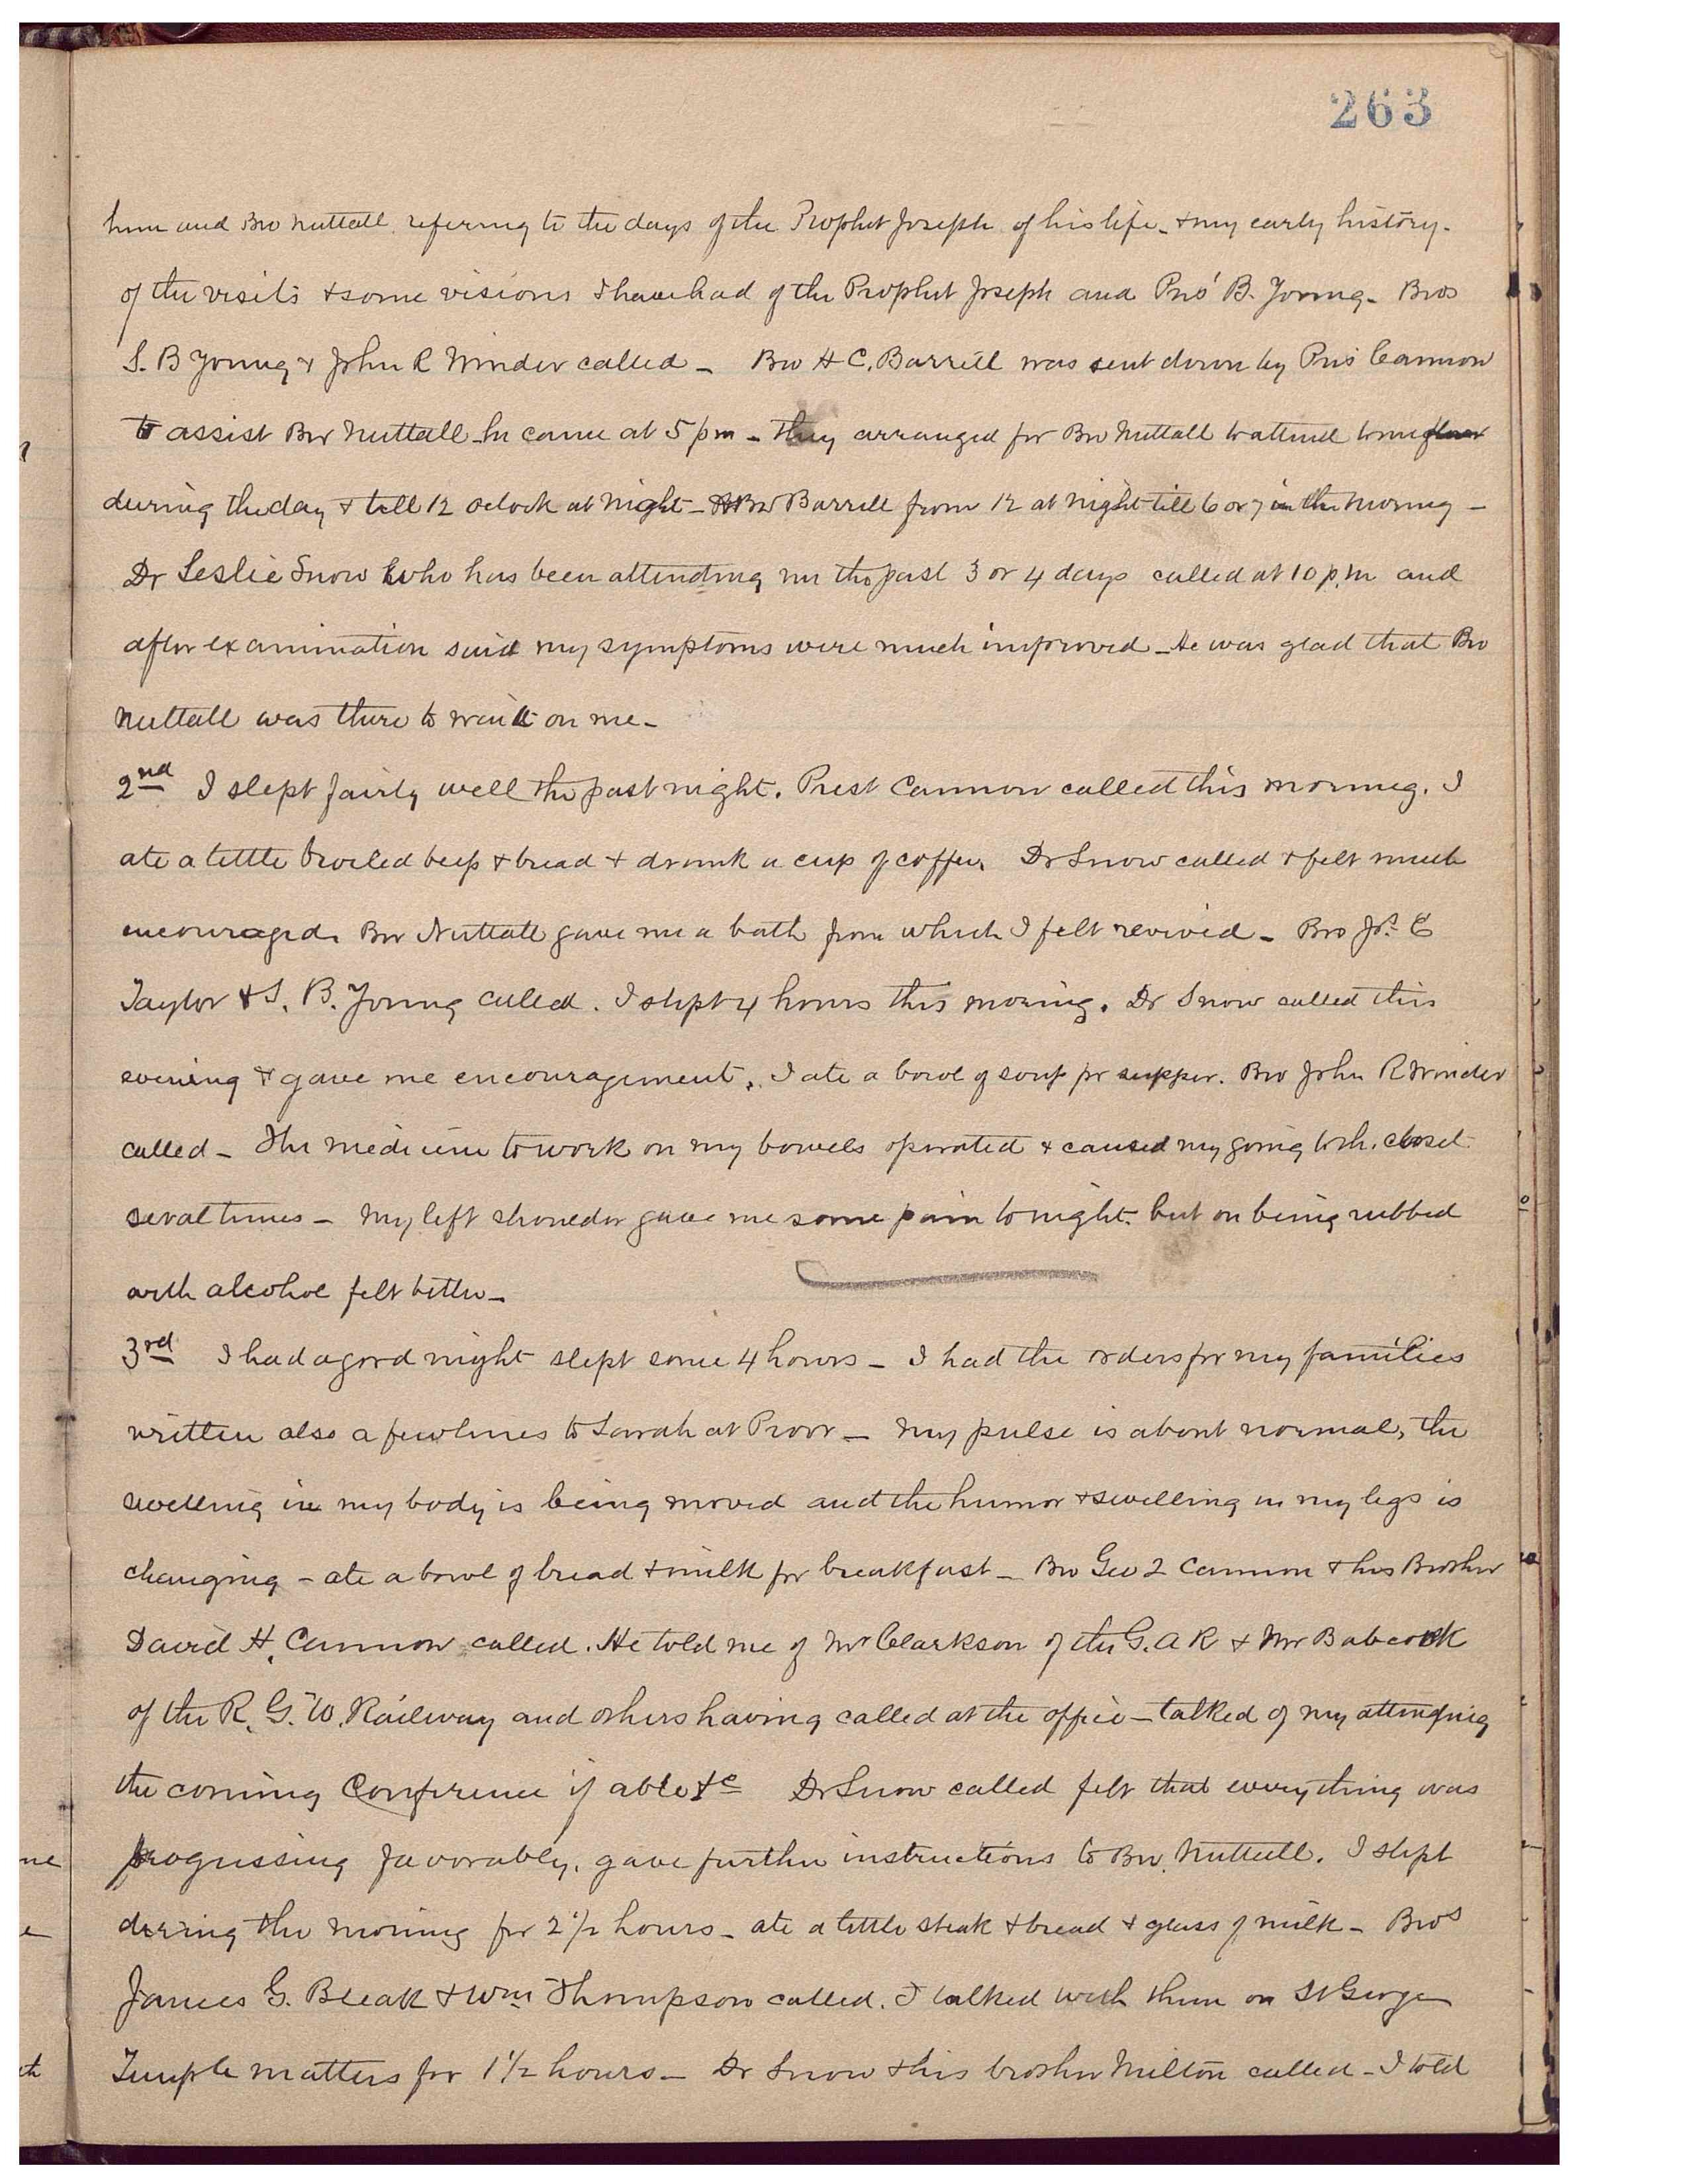 263
him and Bro Nuttall refering to the days of the Prophet Joseph of his life - & my early history.
of the visits & some visions I have had of the Prophet Joseph and Pres' B. Young - Bros
S. B Young & John R Winder called - Bro H C. Barrell was sent down by Pres Cannon
to assist Bro Nuttall he came at 5 pm - they arranged for Bro Nuttall to attend to me
during the day & till 12 oclock at night - Bro Barrell from 12 at night till 6 or 7 in the morning -
Dr Leslie Snow who has been attending me the past 3 or 4 days called at 10 p.m and
after examination said my symptoms were much improved - He was glad that Bro
Nuttall was there to wait on me -
2nd I slept fairly well the past night. Prest Cannon called this morning. I
ate a little broiled beef & bread & drank a cup of coffee. Dr Snow called & felt much
encouraged. Bro Nuttall gave me a bath from which I felt revived - Bro Js. E
Taylor & S. B. Young called. I slept 4 hours this morning. Dr Snow called this
evening & gave me encouragement. I ate a bowl of soup for supper. Bro John R Winder
called - The medicine to work on my bowels operated & caused my going to th. closet
several times - My left shoulder gave me some pain to night. but on being rubbed
with alcohol felt better -
3rd I had a good night slept some 4 hours - I had the orders for my families
written also a few lines to Sarah at Provo - my pulse is about normal, the
swelling in my body is being moved and the humor & swelling in my legs is
changing - ate a bowl of bread & milk for breakfast - Bro Geo Q Cannon & his Brother
David H. Cannon called. He told me of Mr Clarkson of the G. A R & Mr Babcock
of the R. G. W. Railway and others having called at the office - talked of my attending
the coming Conference if able &c Dr Snow called felt that everything was
progressing favorably, gave further instructions to Bro. Nuttall. I slept
during the morning for 2 1/2 hours - ate a little steak & bread & glass of milk - Bros
James G. Bleak & Wm Thompson called. I talked with them on St George
Temple matters for 1 1/2 hours - Dr Snow & his brother Milton called - I told